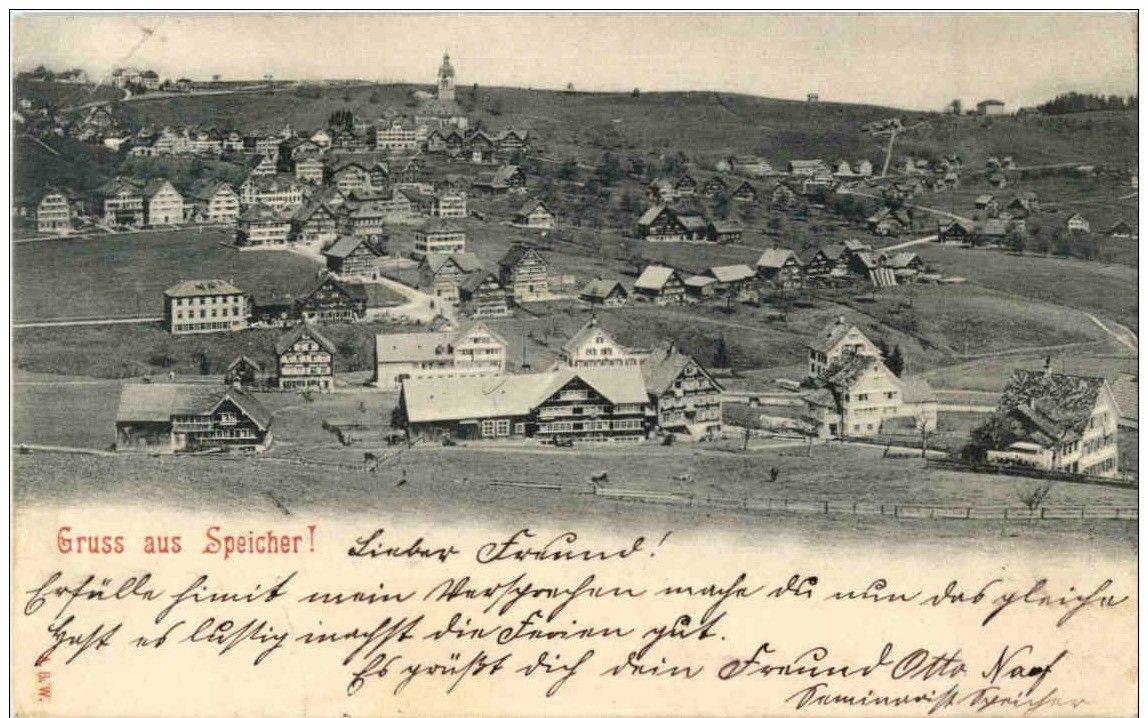 Gruss aus Speicher!
Lieber Freund!
Erfülle himit mein Versprechen mache du nun das gleiche
Hast es lustig machst die Ferien gut.
Es grüßt dich dein Freund Otto Naef
Seminarist Speicher
B. W.